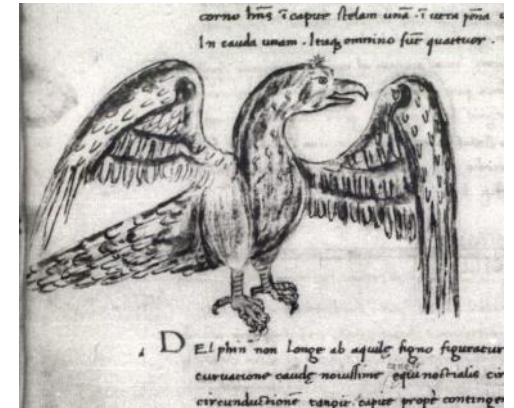 corno hñs ĩ capite stelam unã . ĩ utra pẽna
In cauda unam . Itaq; omnino sunt quattuor .
DElphin non longe ab aquilę signo figuratur
curuatione caudę nouissime equinoctialis cir
circunductionẽ tangit . caput prope contingen